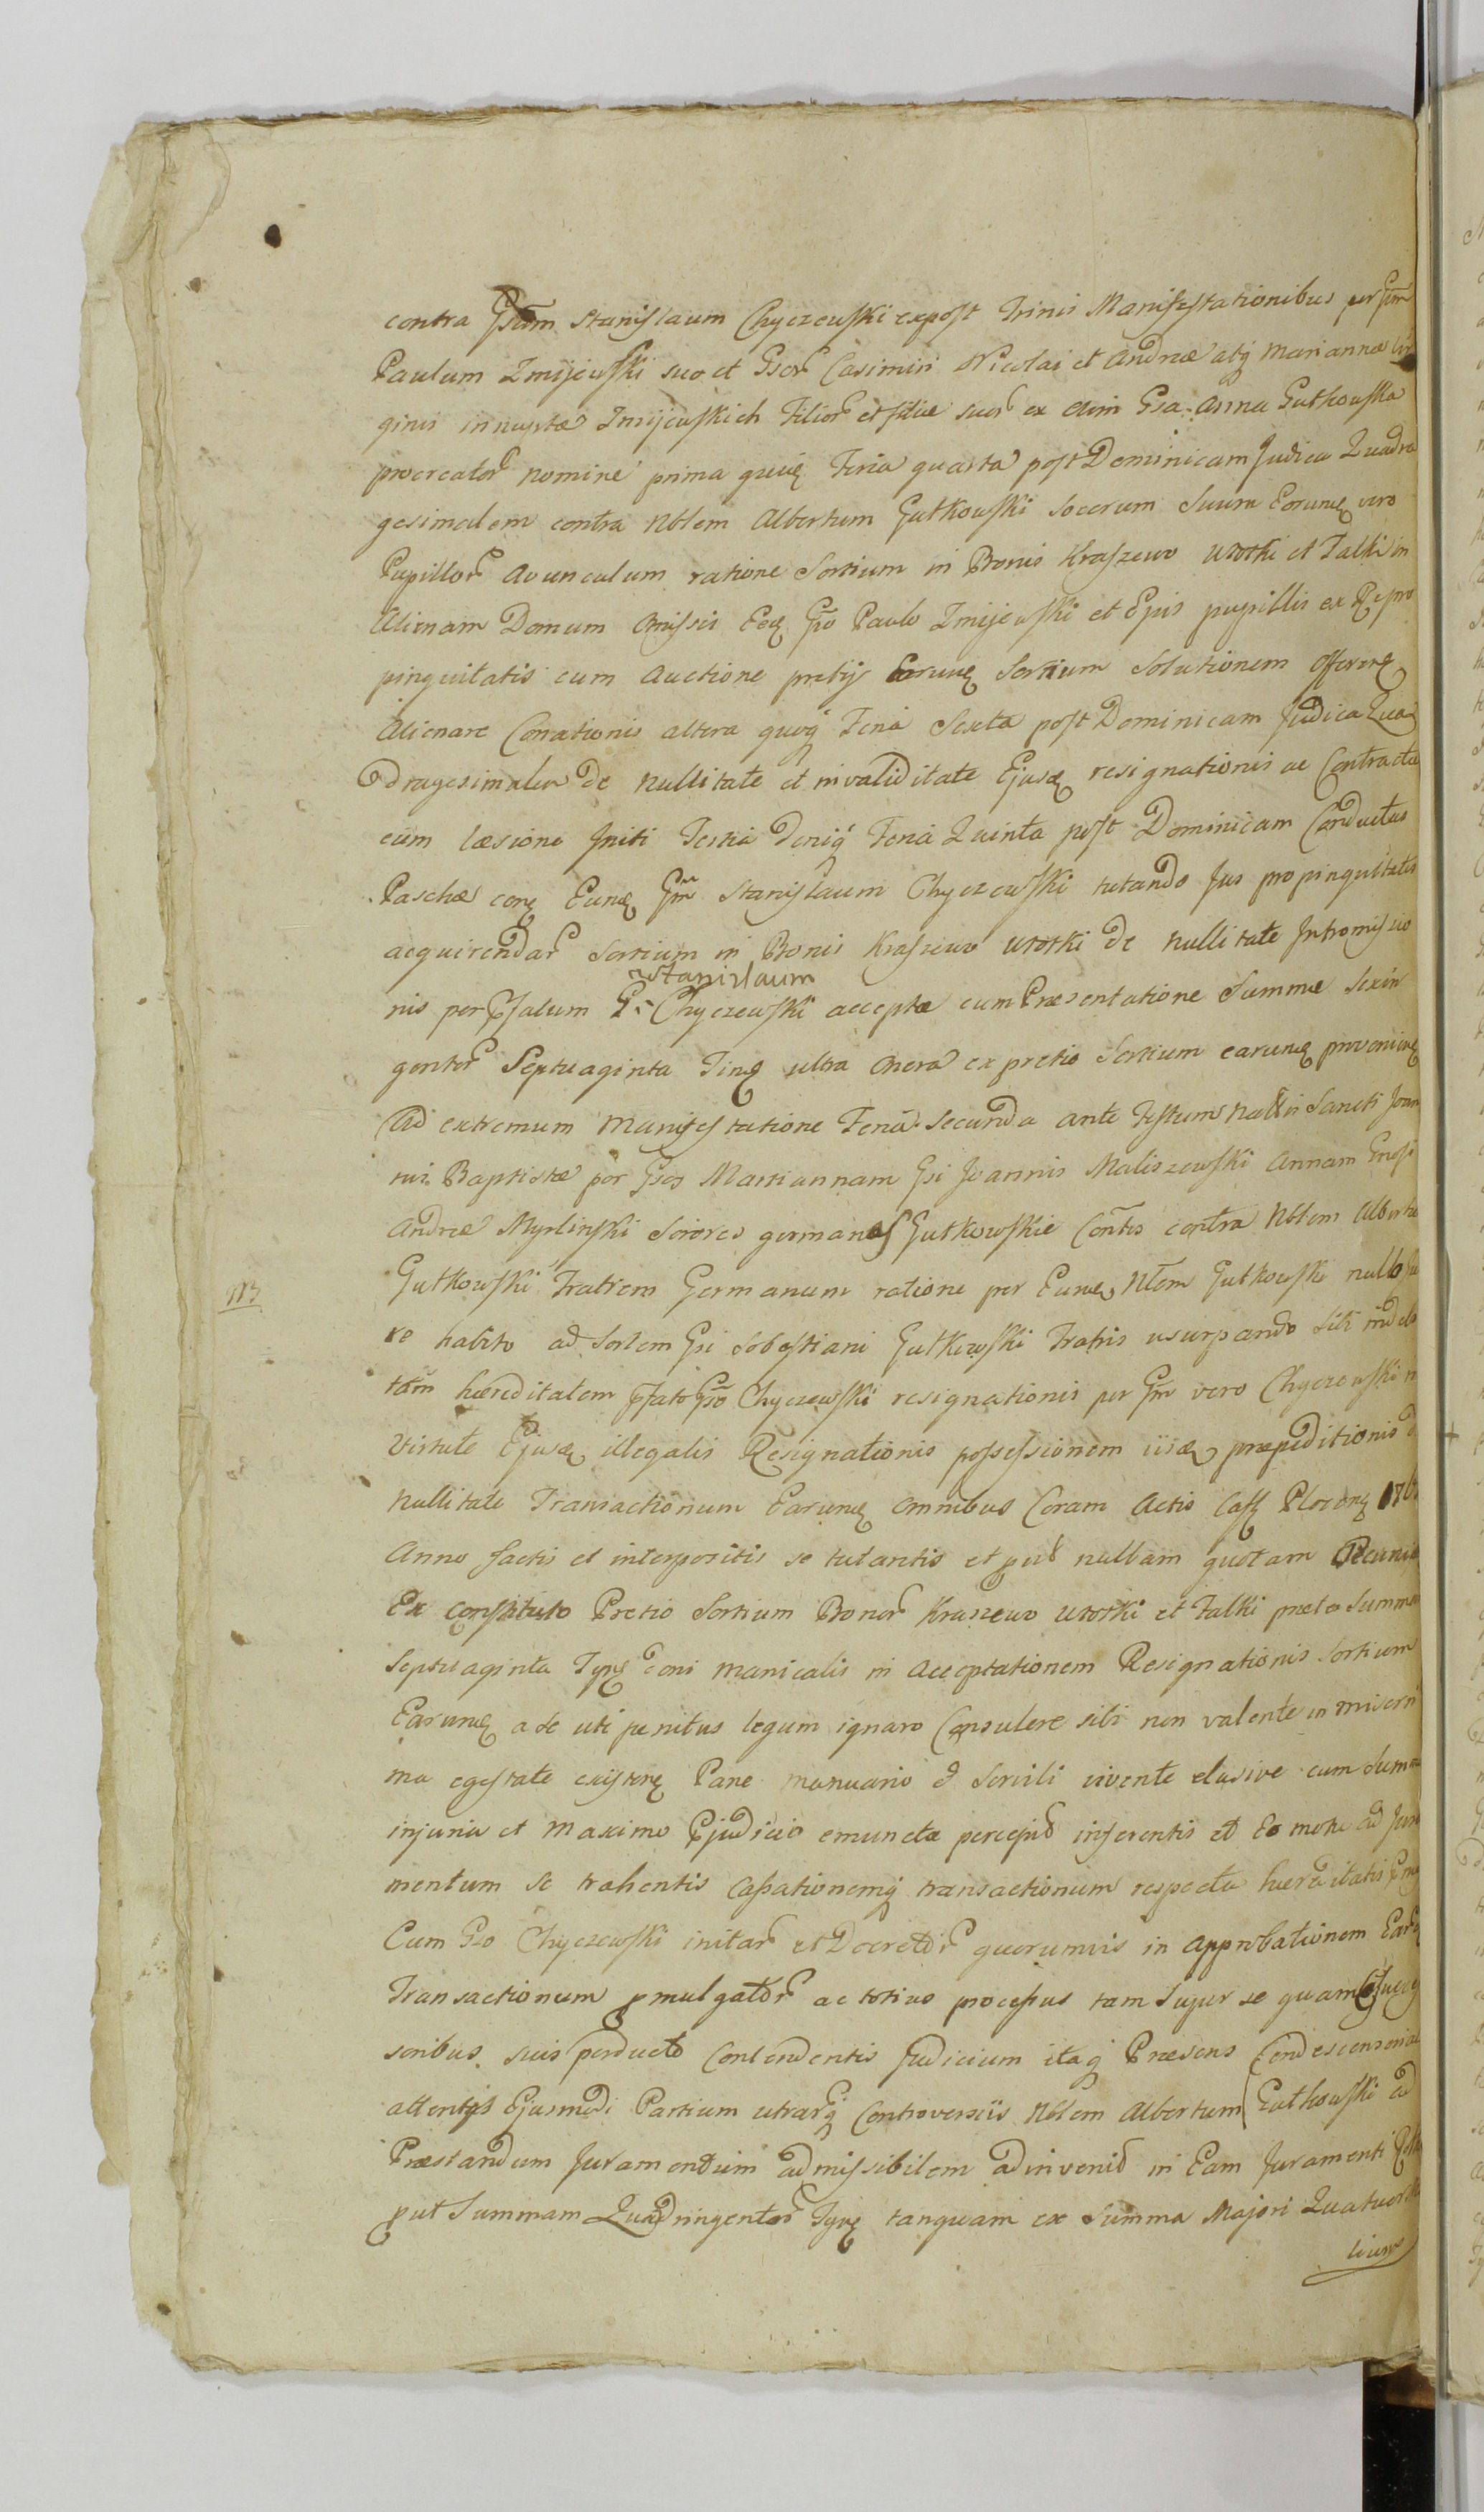 contra Gsum Stanislaum Chyczewski expost Trinis Manifestationibus per Gsum
Paulum Zmijewski suo et Gsor Casimiri Nicolai et Andreæ atq Mariannæ Vir
ginis innuptæ Zmijewskich Filior et filiæ suor ex olim Gsa Anna Gutkowska
procreator nomine prima quæ Feria quarta post Dominicam Judica Quadra
gesimalem contra Nblem Albertum Gutkowski Socerum Suum Eorunq vero
Pupillor Avunculum ratione Sortium in Bonis Kraszewo Wrotki et Falki in
Alienam Domum Omissis Eeq Gso Paulo Zmijewski et Ejus pupillis ex Re pro
pinquitatis cum Auctione pretij Earunq Sortium Solutionem Offerenq
Alienare Conationis altera quoq Feria Sexta post Dominicam Judica Qua
dragesimalem de Nullitate et invaliditate Ejusq resignationis ac Contractu
cum læsione Initi Tertia deniq Feria Quinta post Dominicam Conductus
Paschæ conq Eunq Gsm Stanislaum Chyczewski tutando Jus propinquitatis
acquirendar Sortium in Bonis Kraszewo Wrotki de Nullitate Intromissio
Stanislaum
nis per Pfatum G. Chyczewski acceptæ cum Præsentatione Summæ Sexin
gentor Septuaginta Tinq ultra Onera ex pretio Sortium earunq provenienq
Ad extremum Manifestatione Feria Secunda ante Festum Nattis Sancti Joan
nis Baptistæ per Gsos Martiannam Gsi Joannis Maliszewski Annam Gnosi
Andreæ Myslinski Sorores germanas Gutkowskie Contes contra Nblem Albertum
Gutkowski Fratrem Germanum ratione per Eunq Nblem Gutkowski nullo Ju
113
re habito ad Sortem Gsi Sebestiani Gutkowski Fratris usurpando sibi indebi
tam hæreditatem Pfato Gso Chyczewski resignationis per Gsm vero Chyczewski in
Virtute Ejusq illegalis Resignationis possessionem iisq præpeditionis d
Nullitate Transactionum Earunq Omnibus Coram Actis Cass Plocenq
Anno factis et interpositis se tutantis et nullam quotam Pecuniæ
Ex Constituto Pretio Sortium Bonor Kraszewo Wrotki et Falki præter Summam
Septuaginta Tynq doni manicalis in Acceptationem Resignationis Sortium
Earunq a se uti penitus legum ignaro Consulere sibi non valente in miserri
ma egestate existenq Pane manuario et Servili vivente elusive cum Summa
injuria et Maximo Pjudicio emunctæ percepid inferentis et Eo motu ad Jura
mentum se trahentis Cassationemq transactionum respectu hæreditatis
Cum Gso Chyczewski initar et Decretor quorumvis in Approbationem Earq
Transactionum pmulgator ac totius processus tam Supur se quam
soribus suis perducto Contendentis Judicium itaq Præsens Condescensoria
attentis Ejusmodi Partium utrarq Controversiis Nblem Albertum Gutkowski ad
Præstandum Juramentum admissibilem adinvenid in Eam Juramenti
put Summam Quadringentor Tynq tanquam ex Summa Majori Quatuor
lium